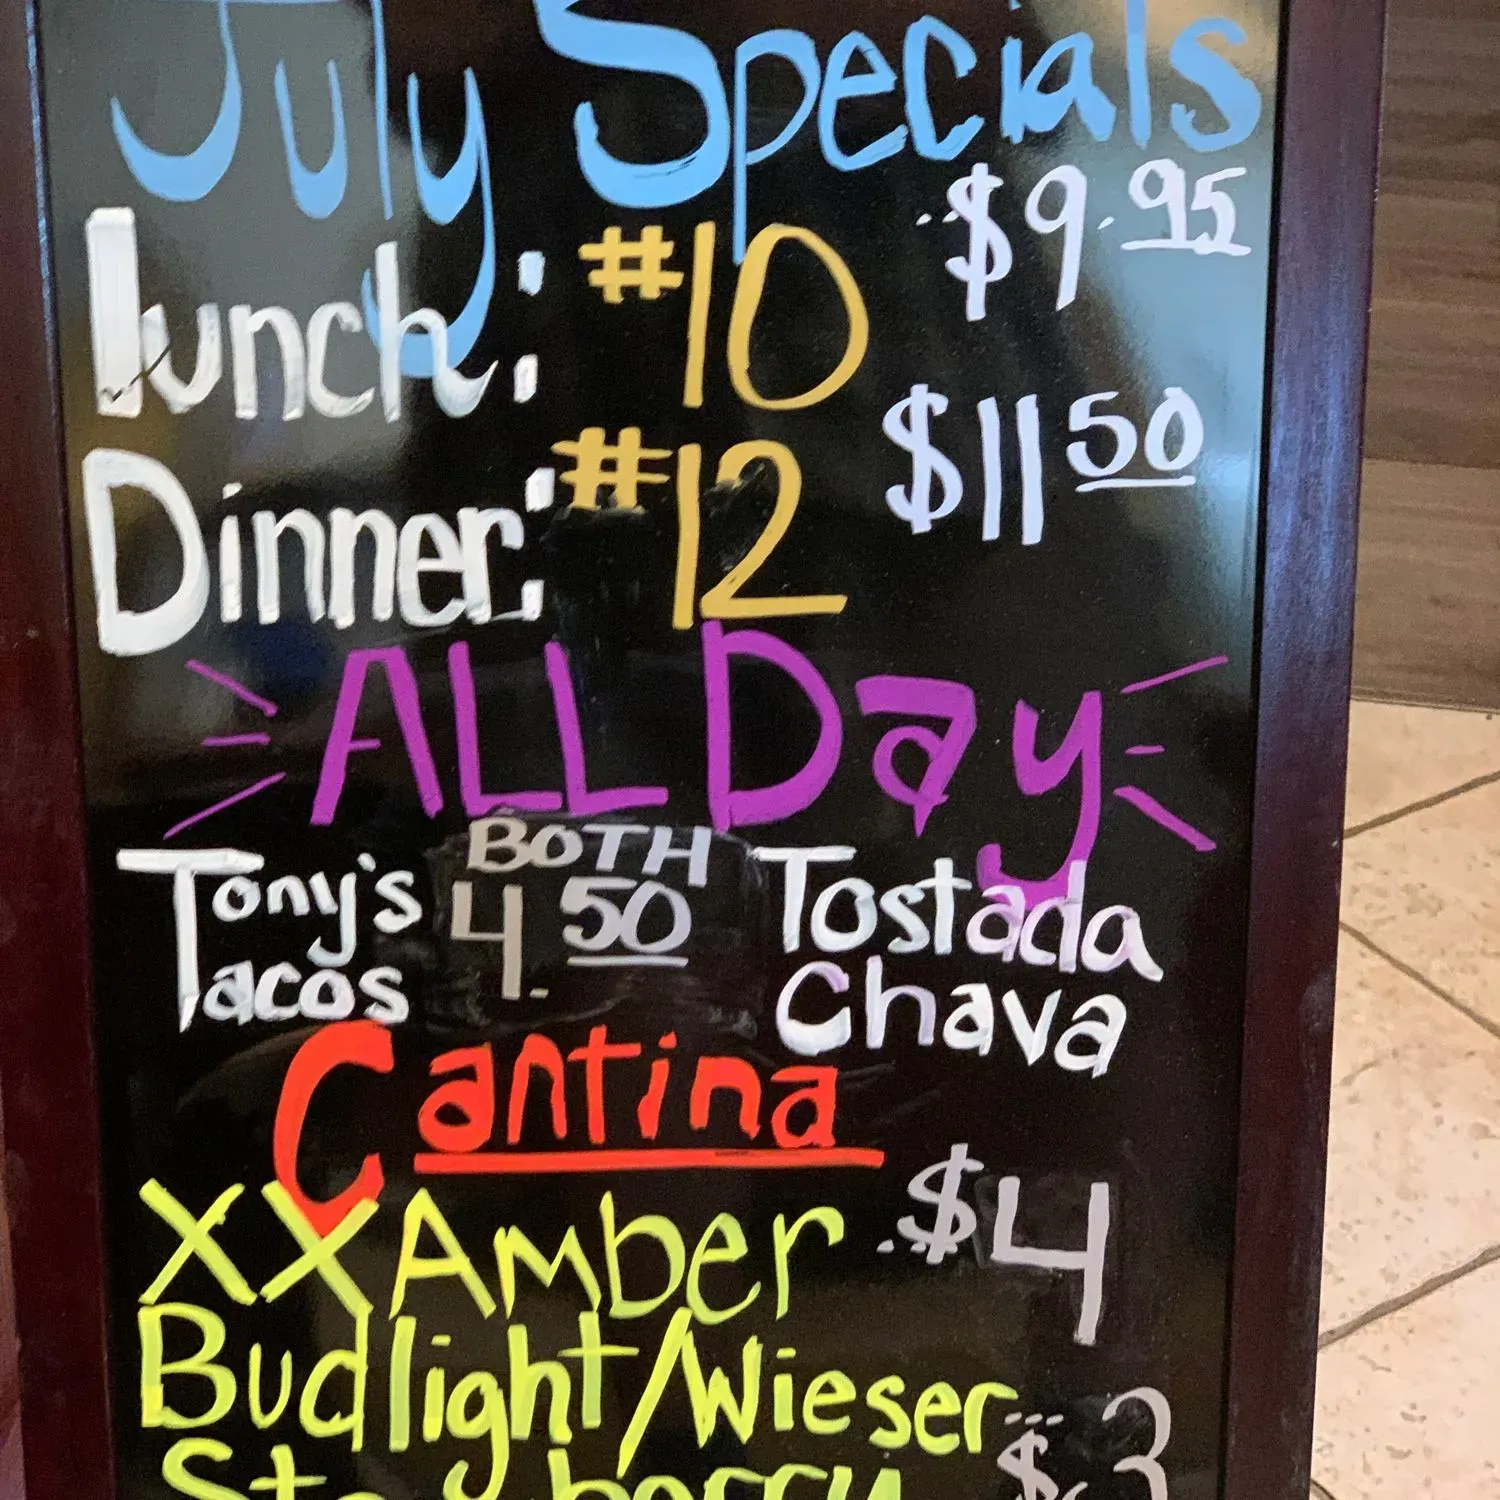 July Specials
Lunch: #10 $9.95
Dinner: #12 $11 50
ALL Day
BOTH
Tony's 4. 50 Tostada
Tacos Chava
Cantina
XX Amber $4
Budlight/Wieser $3